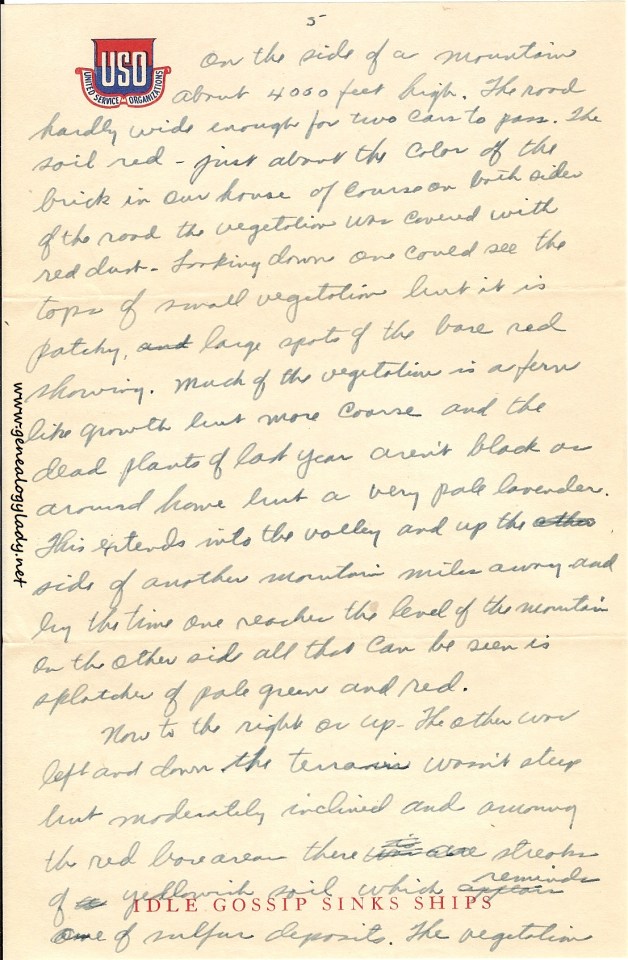 5
USO
UNITED SERVICE ORGANIZATIONS
On the side of a mountain
about 4000 feet high. The road
hardly wide enough for two cars to pass. The
soil red - just about the color of the
brick in our house of course on both sides
of the road the vegetation was covered with
red dust - Looking down one could see the
tops of small vegetation but it is
patchy, and large spots of the bare red
showing. Much of the vegetation is a fern
like growth but more coarse and the
dead plants of last year aren't black as
around home but a very pale lavender.
This extends into the valley and up the other
side of another mountain miles away and
by the time one reaches the level of the mountain
on the other side all that can be seen is
splotches of pale green and red.
Now to the right or up - The other was
left and down the terrain wasn't steep
but moderately inclined and among
the red bare areas there streaks
of a yellowish soil which reminds
one of sulfur deposits. The vegetation
IDLE GOSSIP SINKS SHIPS
www.genealogylady.net